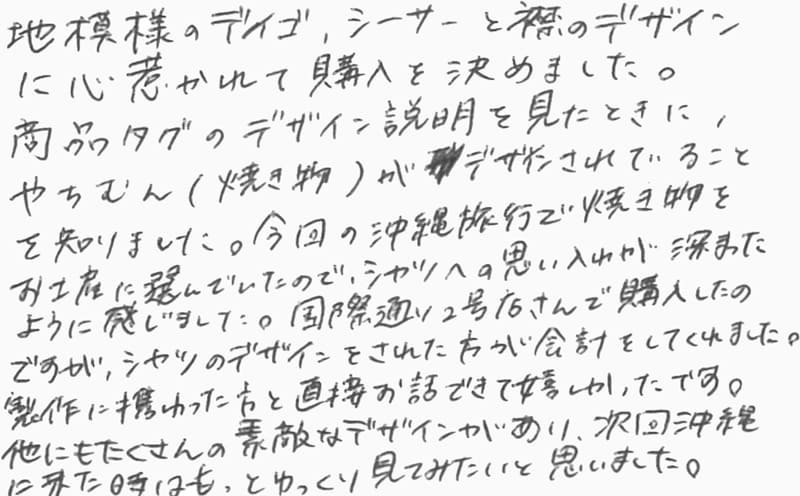 地模様のデイゴ、シーサーと襟のデザイン
に心惹かれて購入を決めました。
商品タグのデザイン説明を見たときに、
やちむん(焼き物)がデザインされていること
を知りました。今回の沖縄旅行で焼き物を
お土産に選んでいたので、シャツへの思い入れが深まった
ように感じました。国際通り2号店さんで購入したの
ですが、シャツのデザインをされた方が会計をしてくれました。
製作に携わった方と直接お話できて嬉しかったです。
他にもたくさんの素敵なデザインがあり、次回沖縄
に来た時はもっとゆっくり見てみたいと思いました。